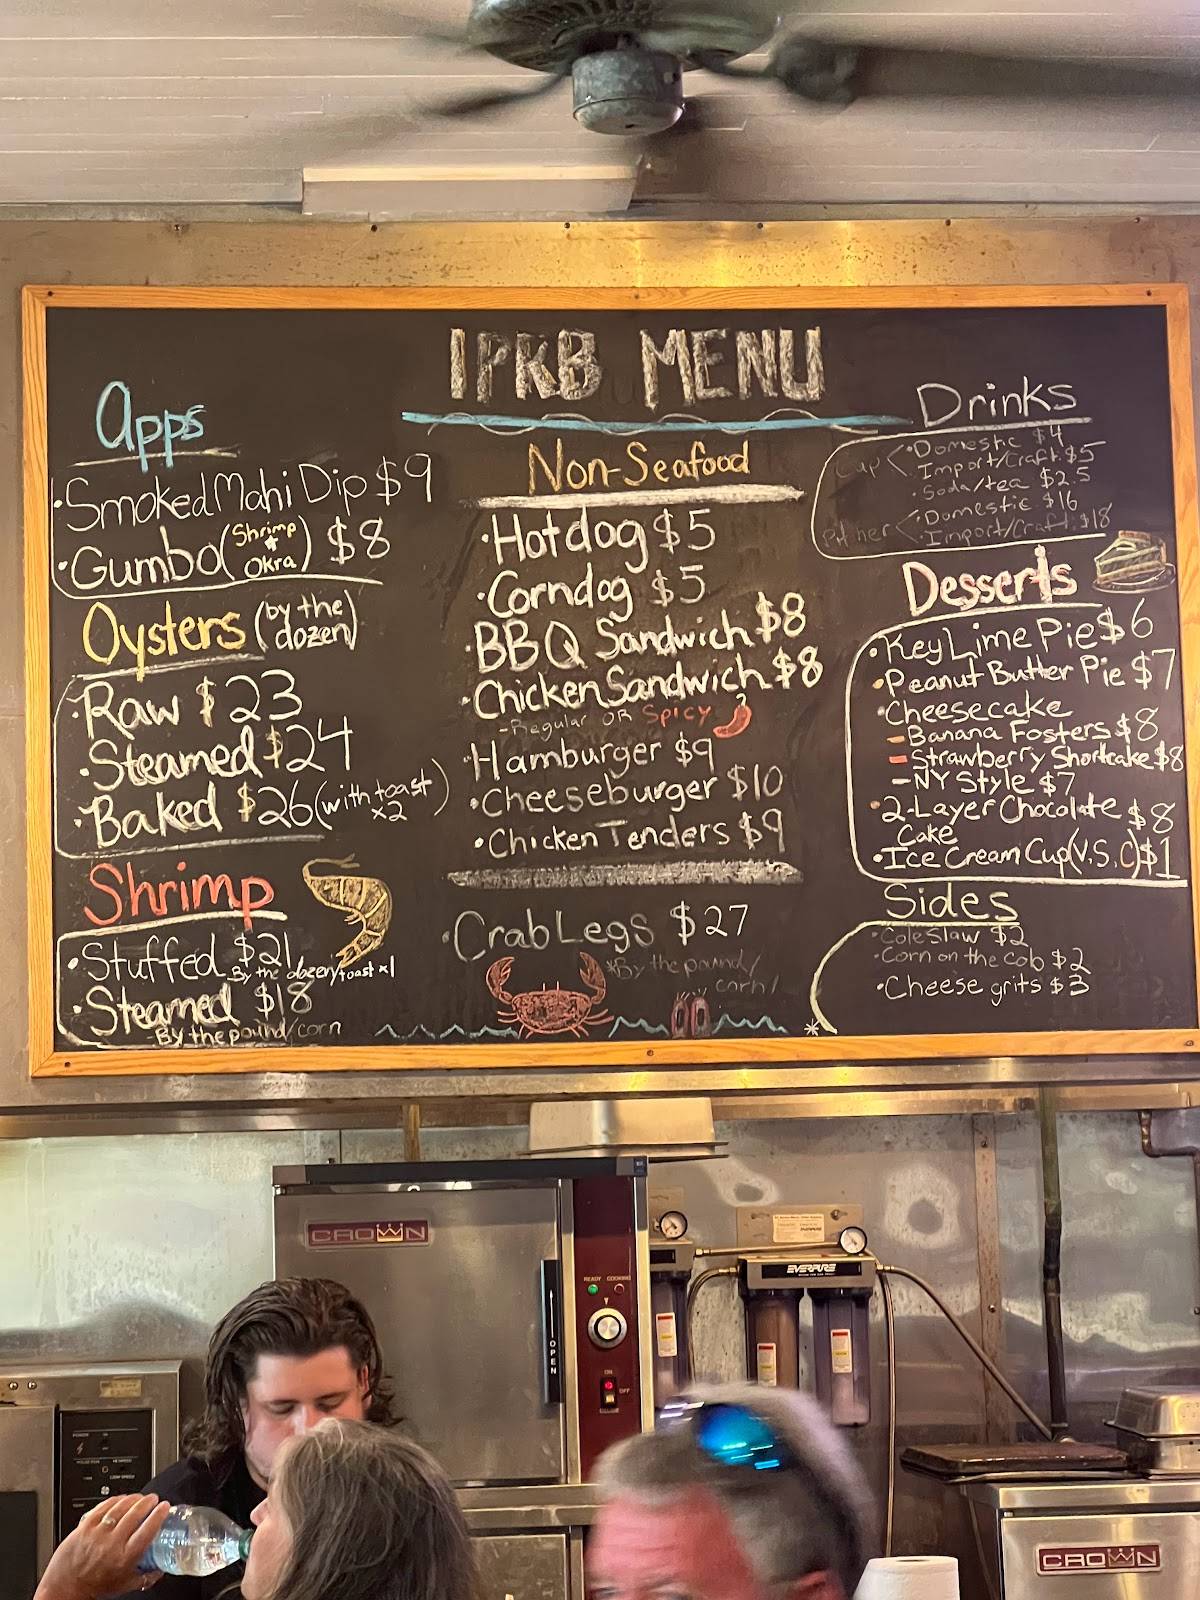 IPKB MENU
Apps
·Smoked Mahi Dip $9
·Gumbo (Shrimp + Okra) $8
Oysters (by the dozen)
·Raw $23
·Steamed $24
·Baked $26 (with toast x2)
Shrimp
·Stuffed $21
By the dozen/toast x1
·Steamed $18
-By the pound/corn
Non-Seafood
·Hotdog $5
·Corndog $5
·BBQ Sandwich $8
·Chicken Sandwich $8
-Regular OR Spicy
·Hamburger $9
·Cheeseburger $10
·Chicken Tenders $9
·Crab Legs $27
*By the pound/
corn/
Drinks
Cup
·Domestic $4
Import/Craft $5
·Soda/tea $2.5
Pitcher
·Domestic $16
·Import/Craft $18
Desserts
·Key Lime Pie $6
·Peanut Butter Pie $7
·Cheesecake
-Banana Fosters $8
-Strawberry Shortcake $8
-NY Style $7
·2-Layer Chocolate Cake $8
·Ice Cream Cup (V, S, C) $1
Sides
·Cole Slaw $2
·Corn on the cob $2
·Cheese grits $3
*
CROWN
READY COOKING
OPEN
ON
OFF
EVERPURE
CROWN